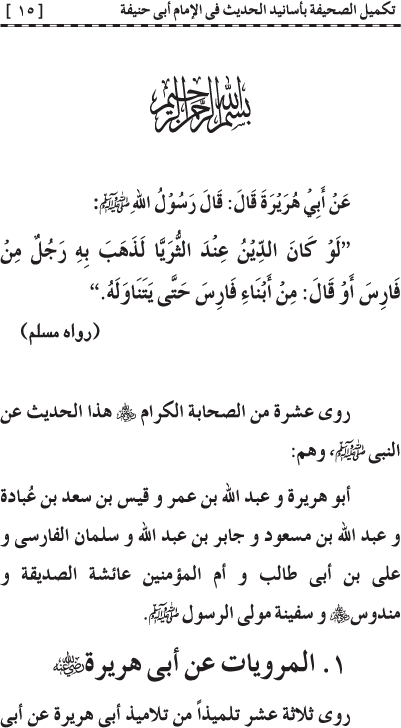 تكميل الصحيفة بأسانيد الحديث فى الإمام أبى حنيفة [ ١٥ ]
بسم الله الرحمن الرحيم
عَنْ أَبِيْ هُرَيْرَةَ قَالَ: قَالَ رَسُوْلُ اللهِ ﷺ:
”لَوْ كَانَ الدِّيْنُ عِنْدَ الثُّرَيَّا لَذَهَبَ بِهِ رَجُلٌ مِنْ
فَارِسَ أَوْ قَالَ: مِنْ أَبْنَاءِ فَارِسَ حَتَّى يَتَنَاوَلَهُ.“
(رواه مسلم)
روى عشرة من الصحابة الكرام ﷺ هذا الحديث عن
النبى ﷺ، وهم:
أبو هريرة و عبد الله بن عمر و قيس بن سعد بن عُبادة
و عبد الله بن مسعود و جابر بن عبد الله و سلمان الفارسى و
على بن أبى طالب و أم المؤمنين عائشة الصديقة و
مندوس و سفينة مولى الرسول ﷺ.
١. المرويات عن أبى هريرة رضي الله عنه
روى ثلاثة عشر تلميذاً من تلاميذ أبى هريرة عن أبى